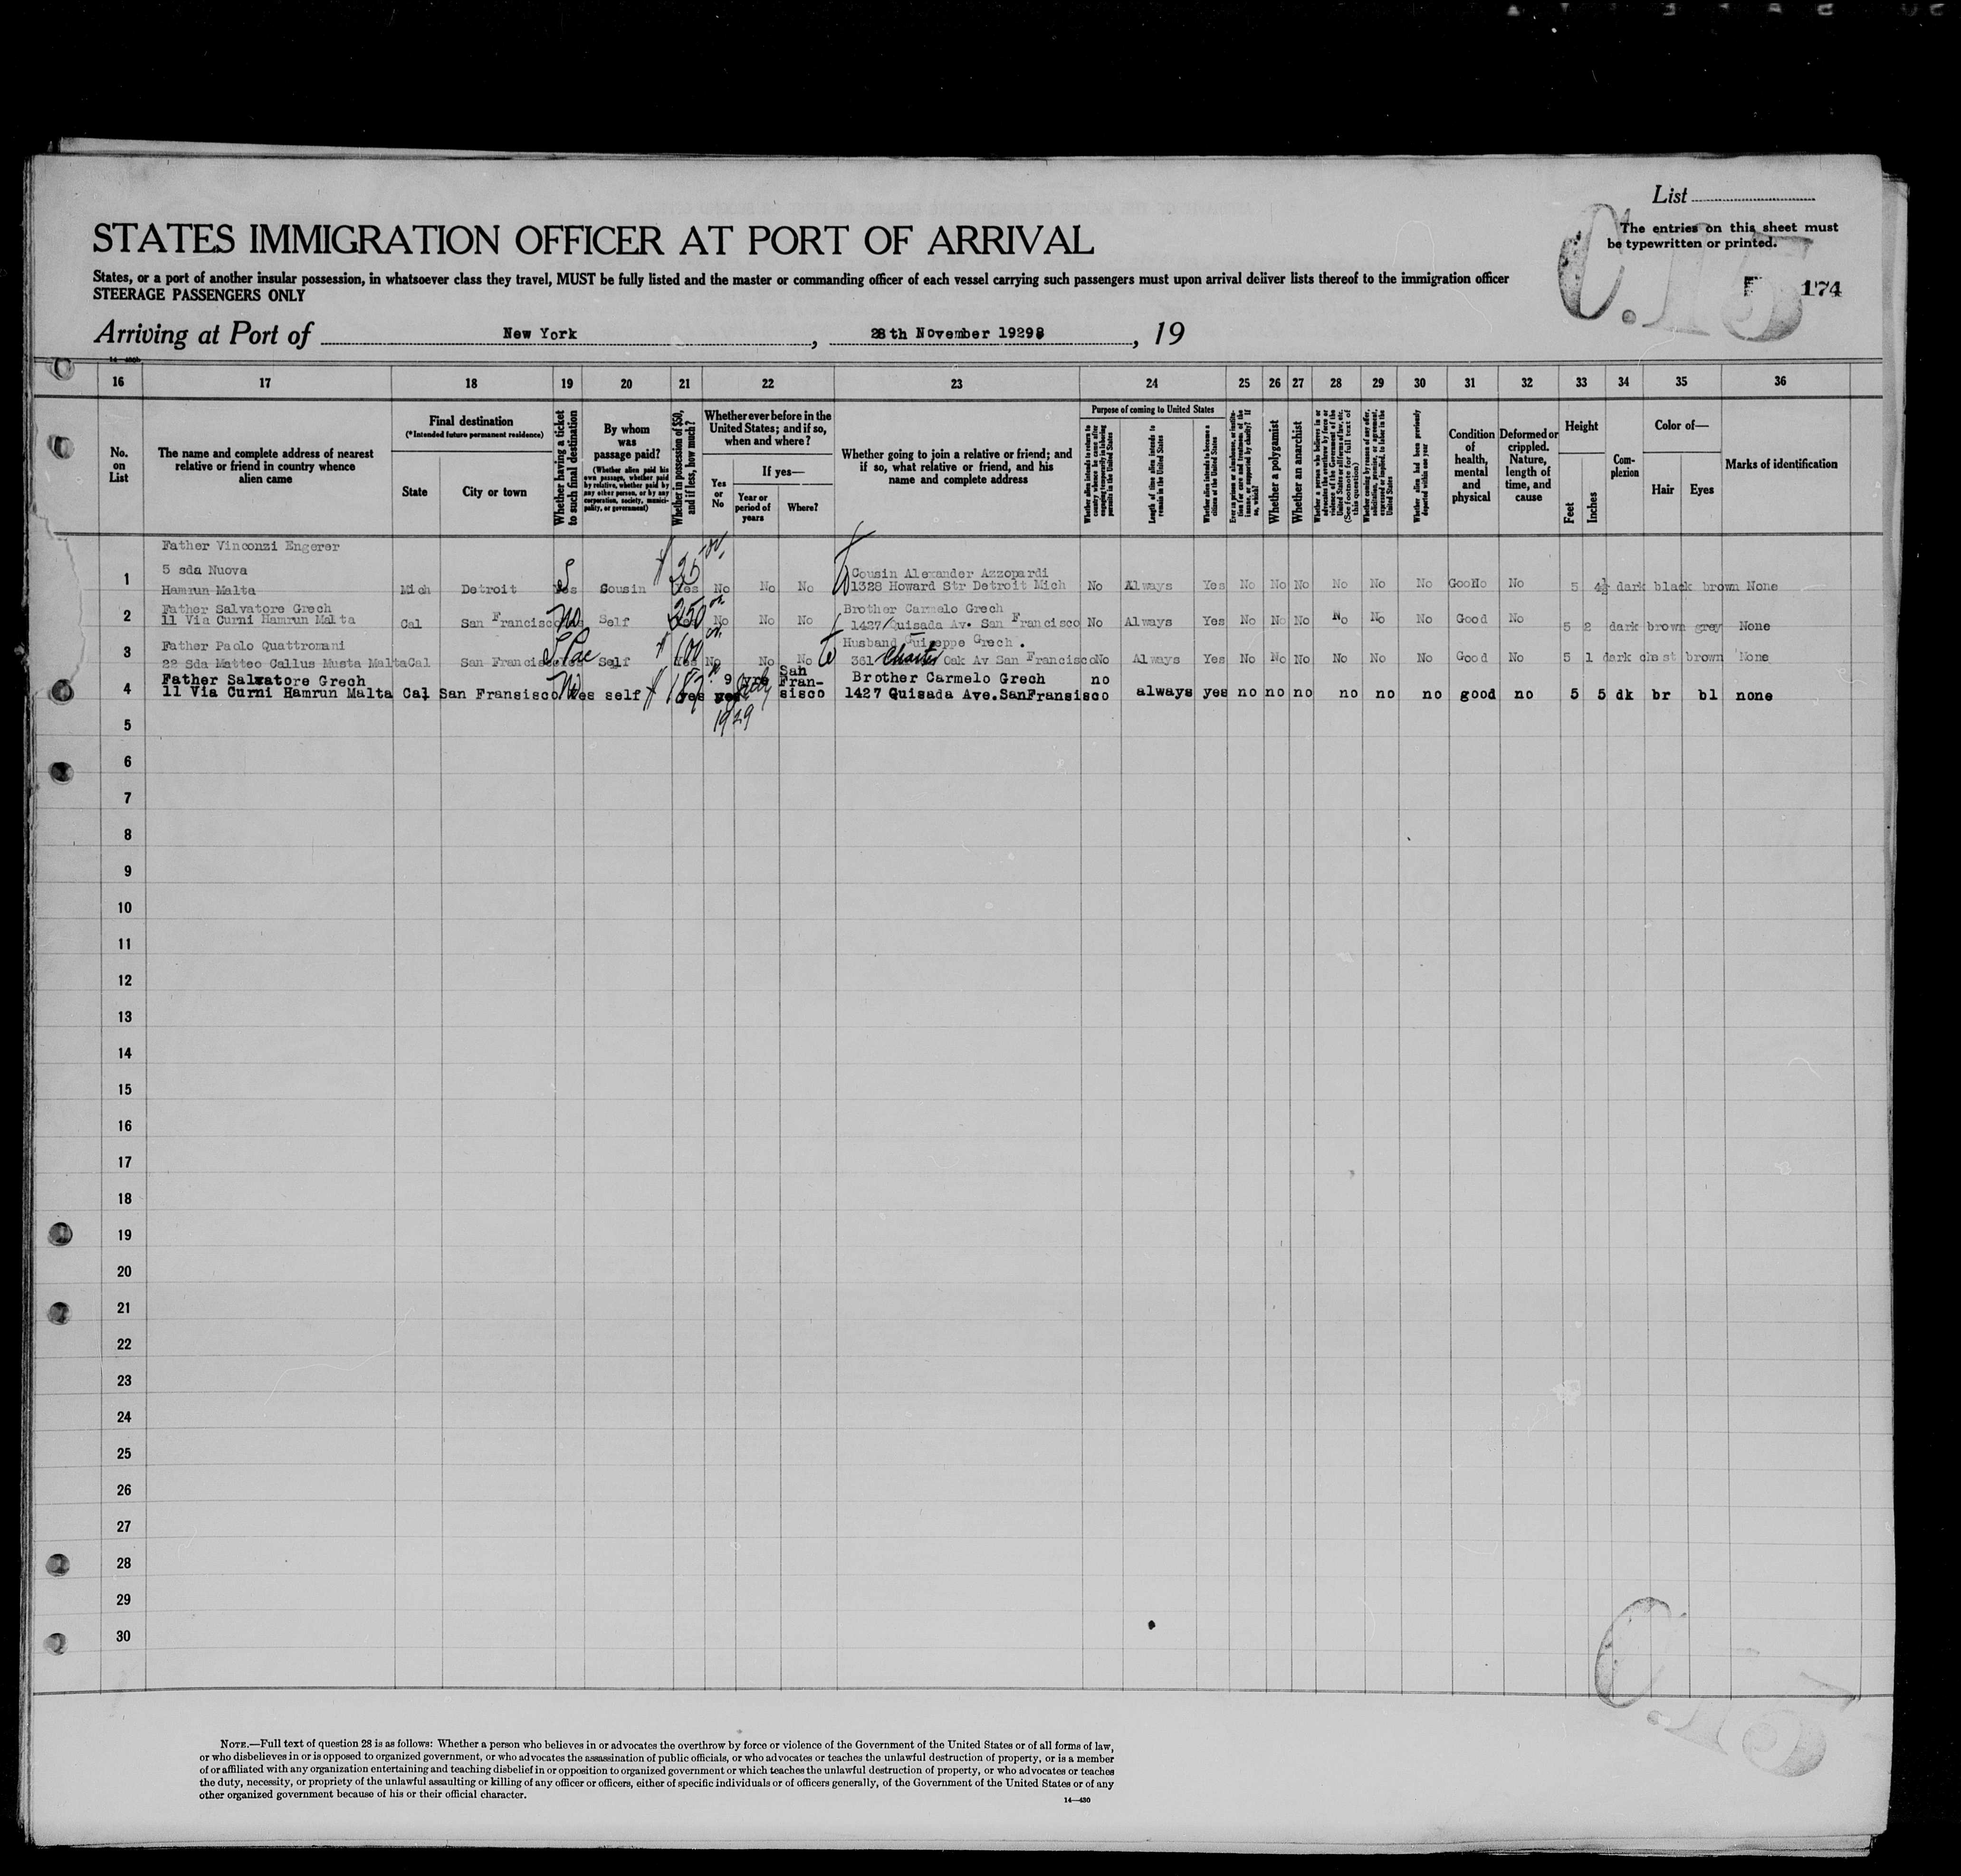 List
The entries on this sheet must
be typewritten or printed.
174
STATES IMMIGRATION OFFICER AT PORT OF ARRIVAL
States, or a port of another insular possession, in whatsoever class they travel, MUST be fully listed and the master or commanding officer of each vessel carrying such passengers must upon arrival deliver lists thereof to the immigration officer
STEERAGE PASSENGERS ONLY
Arriving at Port of New York, 28th November 1929, 19
16 17 18 19 20 21 22 23 24 25 26 27 28 29 30 31 32 33 34 35 36
No. on List
The name and complete address of nearest relative or friend in country whence alien came
Final destination
(*Intended future permanent residence)
State
City or town
Whether having a ticket to such final destination
By whom was passage paid?
(Whether alien paid his own passage, whether paid by relative, whether paid by any other person, or by any corporation, society, municipality, or government)
Whether in possession of $50, and if less, how much?
Whether ever before in the United States; and if so, when and where?
Yes or No
If yes—
Year or period of years
Where?
Whether going to join a relative or friend; and if so, what relative or friend, and his name and complete address
Purpose of coming to United States
Length of time alien intends to remain in the United States
Whether alien intends to become a citizen of the United States
Whether a polygamist
Whether an anarchist
Whether alien had been previously deported within one year
Condition of health, mental and physical
Deformed or crippled. Nature, length of time, and cause
Height
Feet
Inches
Com-plexion
Color of—
Hair
Eyes
Marks of identification
Father Vinconzi Engerer
5 sda Nuova
1 Hamrun Malta Mich Detroit Yes Cousin Yes No No No Cousin Alexander Azzopardi
1328 Howard Str Detroit Mich No Always Yes No No No No No No Good No No 5 4½ dark black brown None
2 Father Salvatore Grech
11 Via Curni Hamrun Malta Cal San Francisco No Self 250 No No No Brother Carmelo Grech
1427 Quisada Av. San Francisco No Always Yes No No No No No No Good No 5 2 dark brown grey None
3 Father Paolo Quattromani
22 Sda Matteo Callus Musta Malta Cal San Francisco Yes Self 600 Yes No No No Husband Guiseppe Grech.
361 Charter Oak Av San Francisco No Always Yes No No No No No No Good No 5 1 dark chast brown None
4 Father Salvatore Grech
11 Via Curni Hamrun Malta Cal San Fransisco Yes self yes yes 1929 San Fran-sisco Brother Carmelo Grech
1427 Quisada Ave.SanFransisco no always yes no no no no no no good no 5 5 dk br bl none
5
6
7
8
9
10
11
12
13
14
15
16
17
18
19
20
21
22
23
24
25
26
27
28
29
30
NOTE.—Full text of question 28 is as follows: Whether a person who believes in or advocates the overthrow by force or violence of the Government of the United States or of all forms of law,
or who disbelieves in or is opposed to organized government, or who advocates the assassination of public officials, or who advocates or teaches the unlawful destruction of property, or is a member
of or affiliated with any organization entertaining and teaching disbelief in or opposition to organized government or which teaches the unlawful destruction of property, or who advocates or teaches
the duty, necessity, or propriety of the unlawful assaulting or killing of any officer or officers, either of specific individuals or of officers generally, of the Government of the United States or of any
other organized government because of his or their official character.
14—430